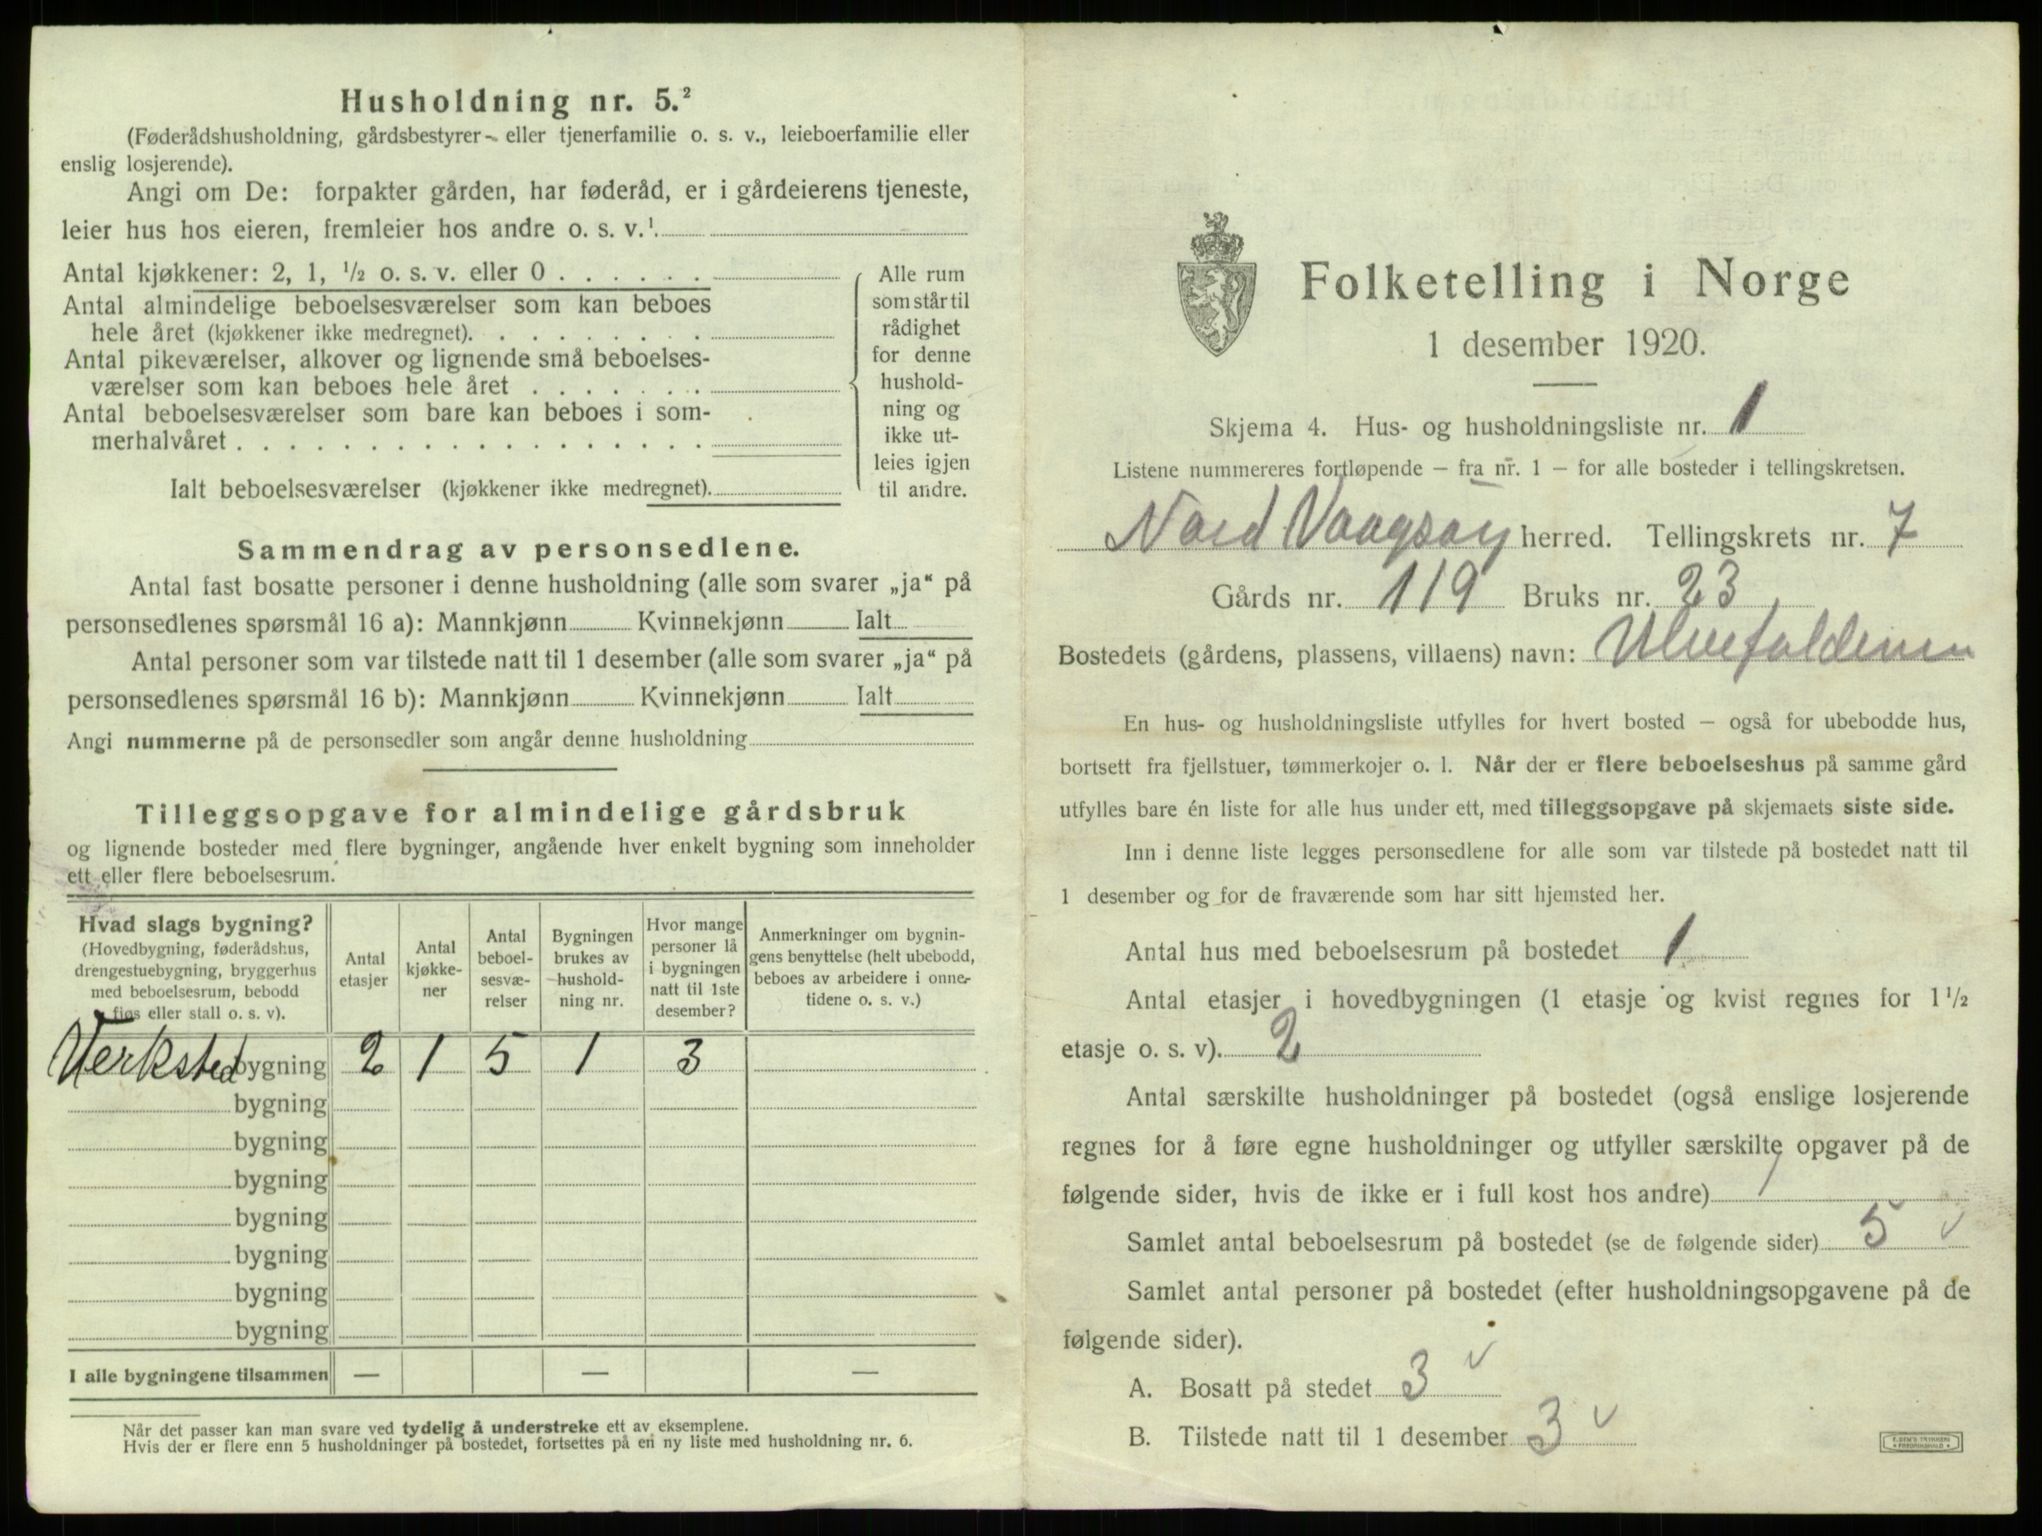 Husholdning nr. 5.²
(Føderådshusholdning, gårdsbestyrer- eller tjenerfamilie o. s. v., leieboerfamilie eller
enslig losjerende).
Angi om De: forpakter gården, har føderåd, er i gårdeierens tjeneste,
leier hus hos eieren, fremleier hos andre o. s. v.¹
Antal kjøkkener: 2, 1, ½ o. s. v. eller 0
Antal almindelige beboelsesværelser som kan beboes
hele året (kjøkkener ikke medregnet).
Antal pikeværelser, alkover og lignende små beboelses-
værelser som kan beboes hele året
Antal beboelsesværelser som bare kan beboes i som-
merhalvåret
Ialt beboelsesværelser (kjøkkener ikke medregnet).
Alle rum
som står til
rådighet
for denne
hushold-
ning og
ikke ut-
leies igjen
til andre.
Sammendrag av personsedlene.
Antal fast bosatte personer i denne husholdning (alle som svarer „ja“ på
personsedlenes spørsmål 16 a): Mannkjønn Kvinnekjønn Ialt
Antal personer som var tilstede natt til 1 desember (alle som svarer „ja“ på
personsedlenes spørsmål 16 b): Mannkjønn Kvinnekjønn Ialt
Angi nummerne på de personsedler som angår denne husholdning
Tilleggsopgave for almindelige gårdsbruk
og lignende bosteder med flere bygninger, angående hver enkelt bygning som inneholder
ett eller flere beboelsesrum.
Hvad slags bygning?
(Hovedbygning, føderådshus,
drengestuebygning, bryggerhus
med beboelsesrum, bebodd
fjøs eller stall o. s. v).
Antal
etasjer
Antal
kjøkke-
ner
Antal
beboel-
sesvæ-
relser
Bygningen
brukes av
hushold-
ning nr.
Hvor mange
personer lå
i bygningen
natt til 1ste
desember?
Anmerkninger om bygnin-
gens benyttelse (helt ubebodd,
beboes av arbeidere i onne-
tidene o. s. v.)
Verksted bygning 2 1 5 1 3
bygning
bygning
bygning
bygning
bygning
bygning
bygning
I alle bygningene tilsammen — — —
Når det passer kan man svare ved tydelig å understreke ett av eksemplene.
Hvis der er flere enn 5 husholdninger på bostedet, fortsettes på en ny liste med husholdning nr. 6.
Folketelling i Norge
1 desember 1920.
Skjema 4. Hus- og husholdningsliste nr. 1
Listene nummereres fortløpende – fra nr. 1 – for alle bosteder i tellingskretsen.
Nord Vaagsøy herred. Tellingskrets nr. 7
Gårds nr. 119 Bruks nr. 23
Bostedets (gårdens, plassens, villaens) navn:
En hus- og husholdningsliste utfylles for hvert bosted – også for ubebodde hus,
bortsett fra fjellstuer, tømmerkojer o. l. Når der er flere beboelseshus på samme gård
utfylles bare én liste for alle hus under ett, med tilleggsopgave på skjemaets siste side.
Inn i denne liste legges personsedlene for alle som var tilstede på bostedet natt til
1 desember og for de fraværende som har sitt hjemsted her.
Antal hus med beboelsesrum på bostedet 1
Antal etasjer i hovedbygningen (1 etasje og kvist regnes for 1½
etasje o. s. v). 2
Antal særskilte husholdninger på bostedet (også enslige losjerende
regnes for å føre egne husholdninger og utfyller særskilte opgaver på de
følgende sider, hvis de ikke er i full kost hos andre) 1
Samlet antal beboelsesrum på bostedet (se de følgende sider) 5 v
Samlet antal personer på bostedet (efter husholdningsopgavene på de
følgende sider).
A. Bosatt på stedet 3 v
B. Tilstede natt til 1 desember 3 v